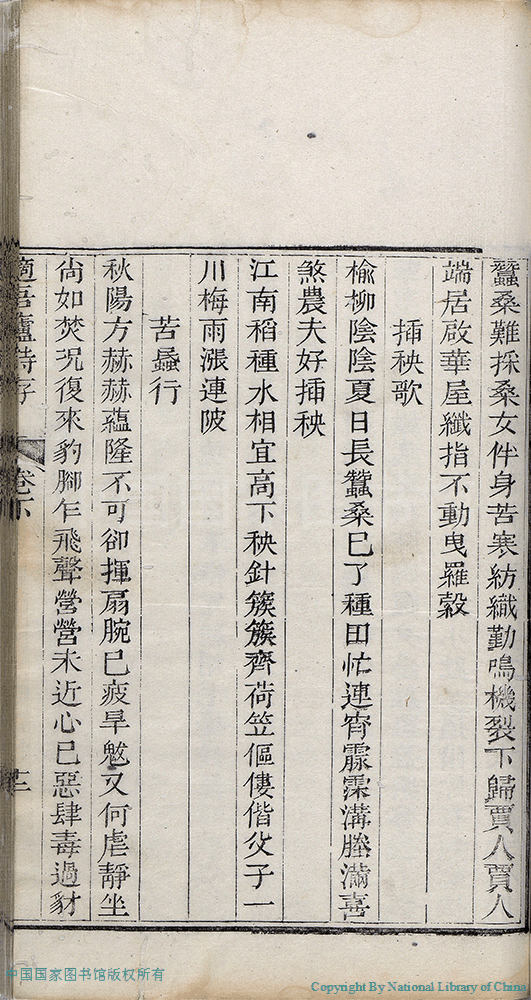 蠶桑難採桑女伴身苦寒紡織勤鳴機裂下歸賈人賈人
端居啟華屋纖指不動曳羅縠
揷秧歌
榆柳陰陰夏日長蠶桑巳了種田忙連宵霡霂溝塍滿喜
煞農夫好揷秧
江南稻種水相宜高下秧針簇簇齊荷笠傴僂偕父子一
川梅雨漲連陂
苦蟁行
秋陽方赫赫蘊隆不可卻揮扇腕巳疲旱魃又何虐靜坐
尙如焚況復來豹腳乍飛聲營營未近心巳惡肆毒過豺
廬詩存
卷下
十二
中国国家图书馆版权所有
Copyright By National Library of China